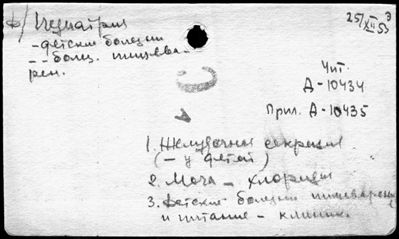 ф/ Педиатрия
- детские болезни
- - болез. пищева-
рен.
25/XII 53
Чит.
Д-10434
Прил. Д-10435
1. Желудочная секреция
(- у детей)
2. Моча - хлориды
3. Детские болезни пищеварения
и питание - клиник.